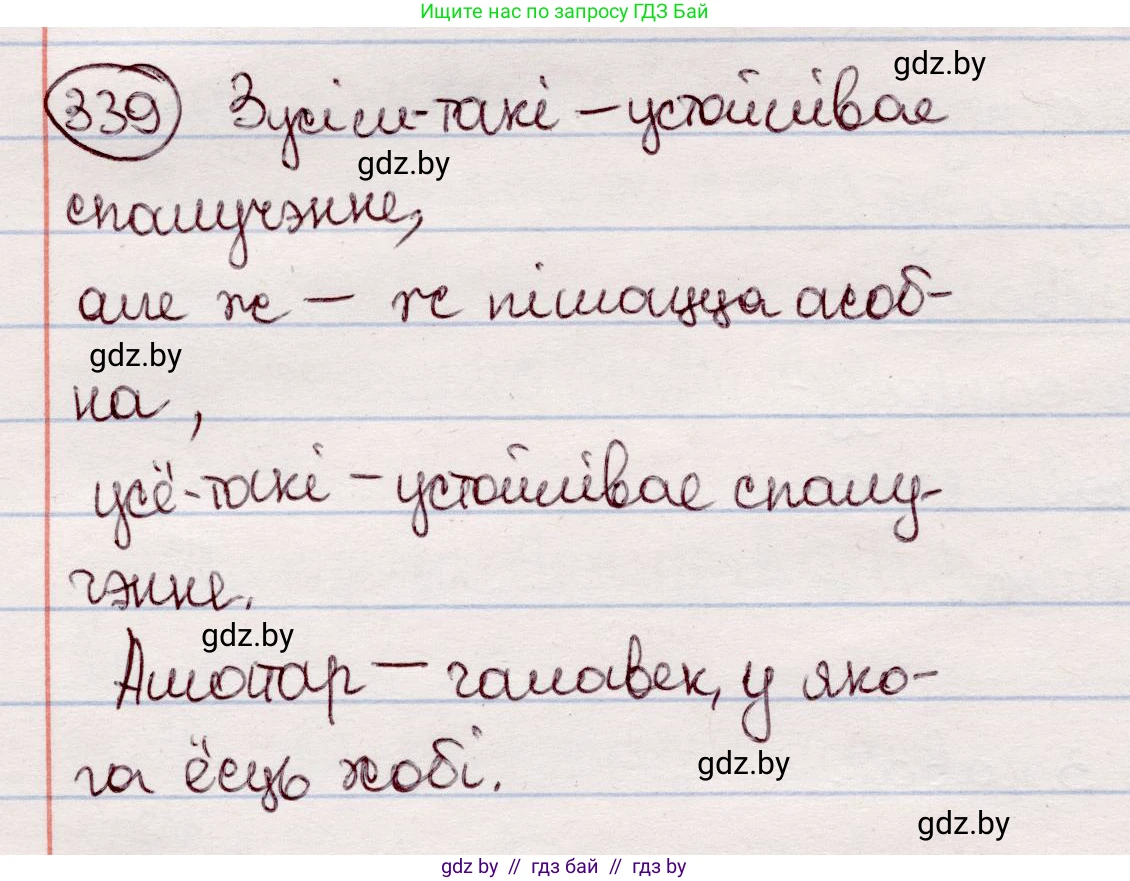 Ищите нас по запросу ГДЗ Бай
gdz.by
339 Зусім-такі – устойлівае
gdz.by
спалучэнне,
але ж – ж пішацца асоб-
gdz.by
на,
усё-такі – устойлівае спалу-
чэнне.
gdz.by
Аматар – чалавек, у яко-
га ёсць хобі.
gdz.by
gdz.by
gdz by // гдз бай // гдз by